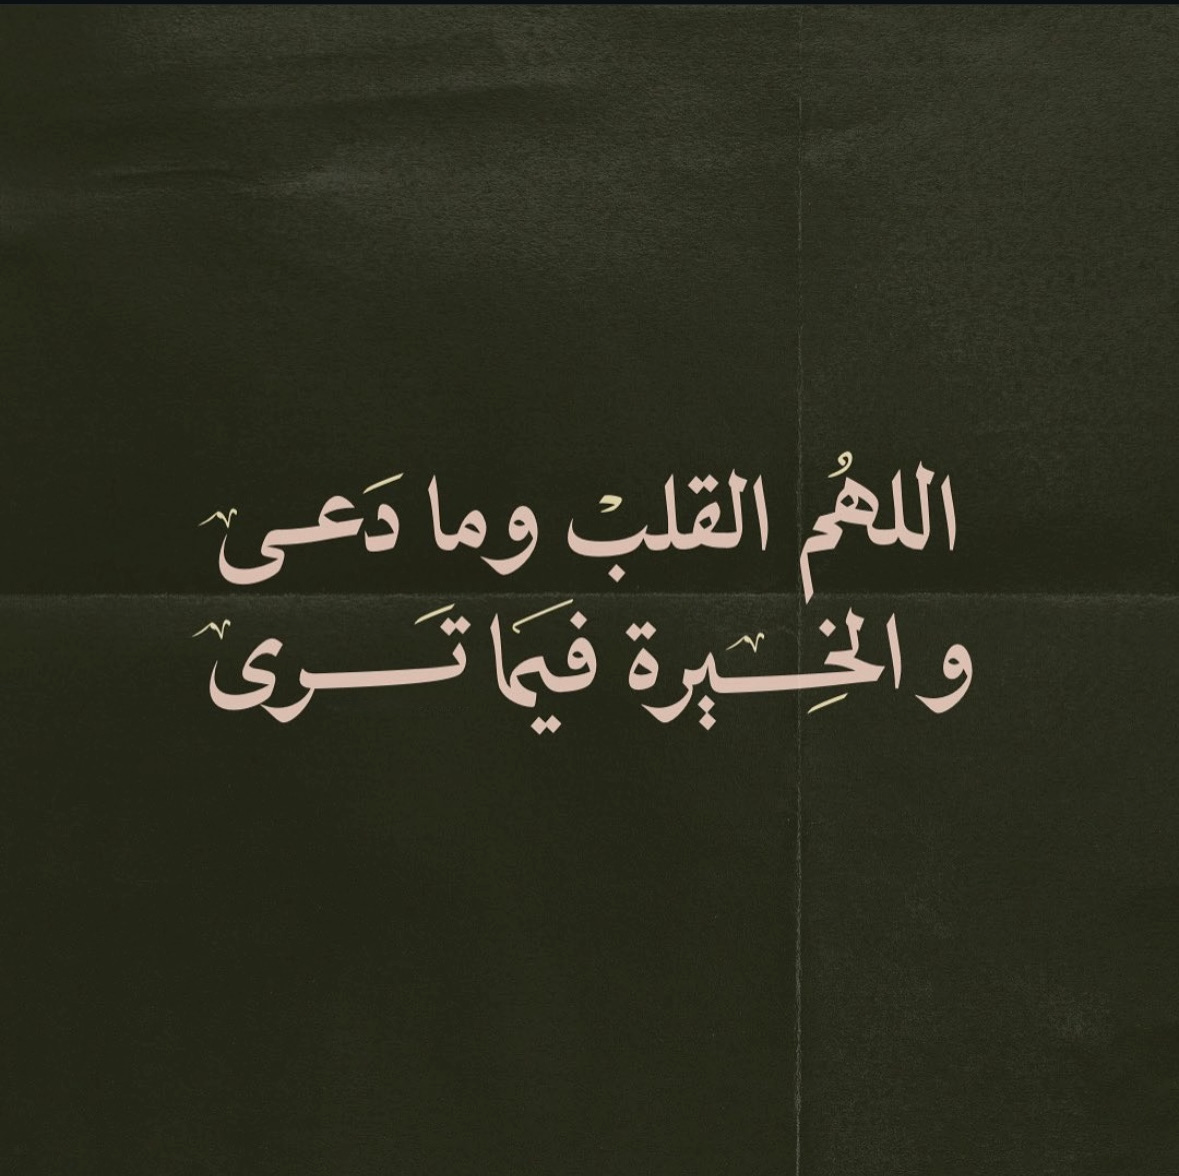 اللهُم القلبْ وما دَعى
و الخِيرة فيمَا تَرى